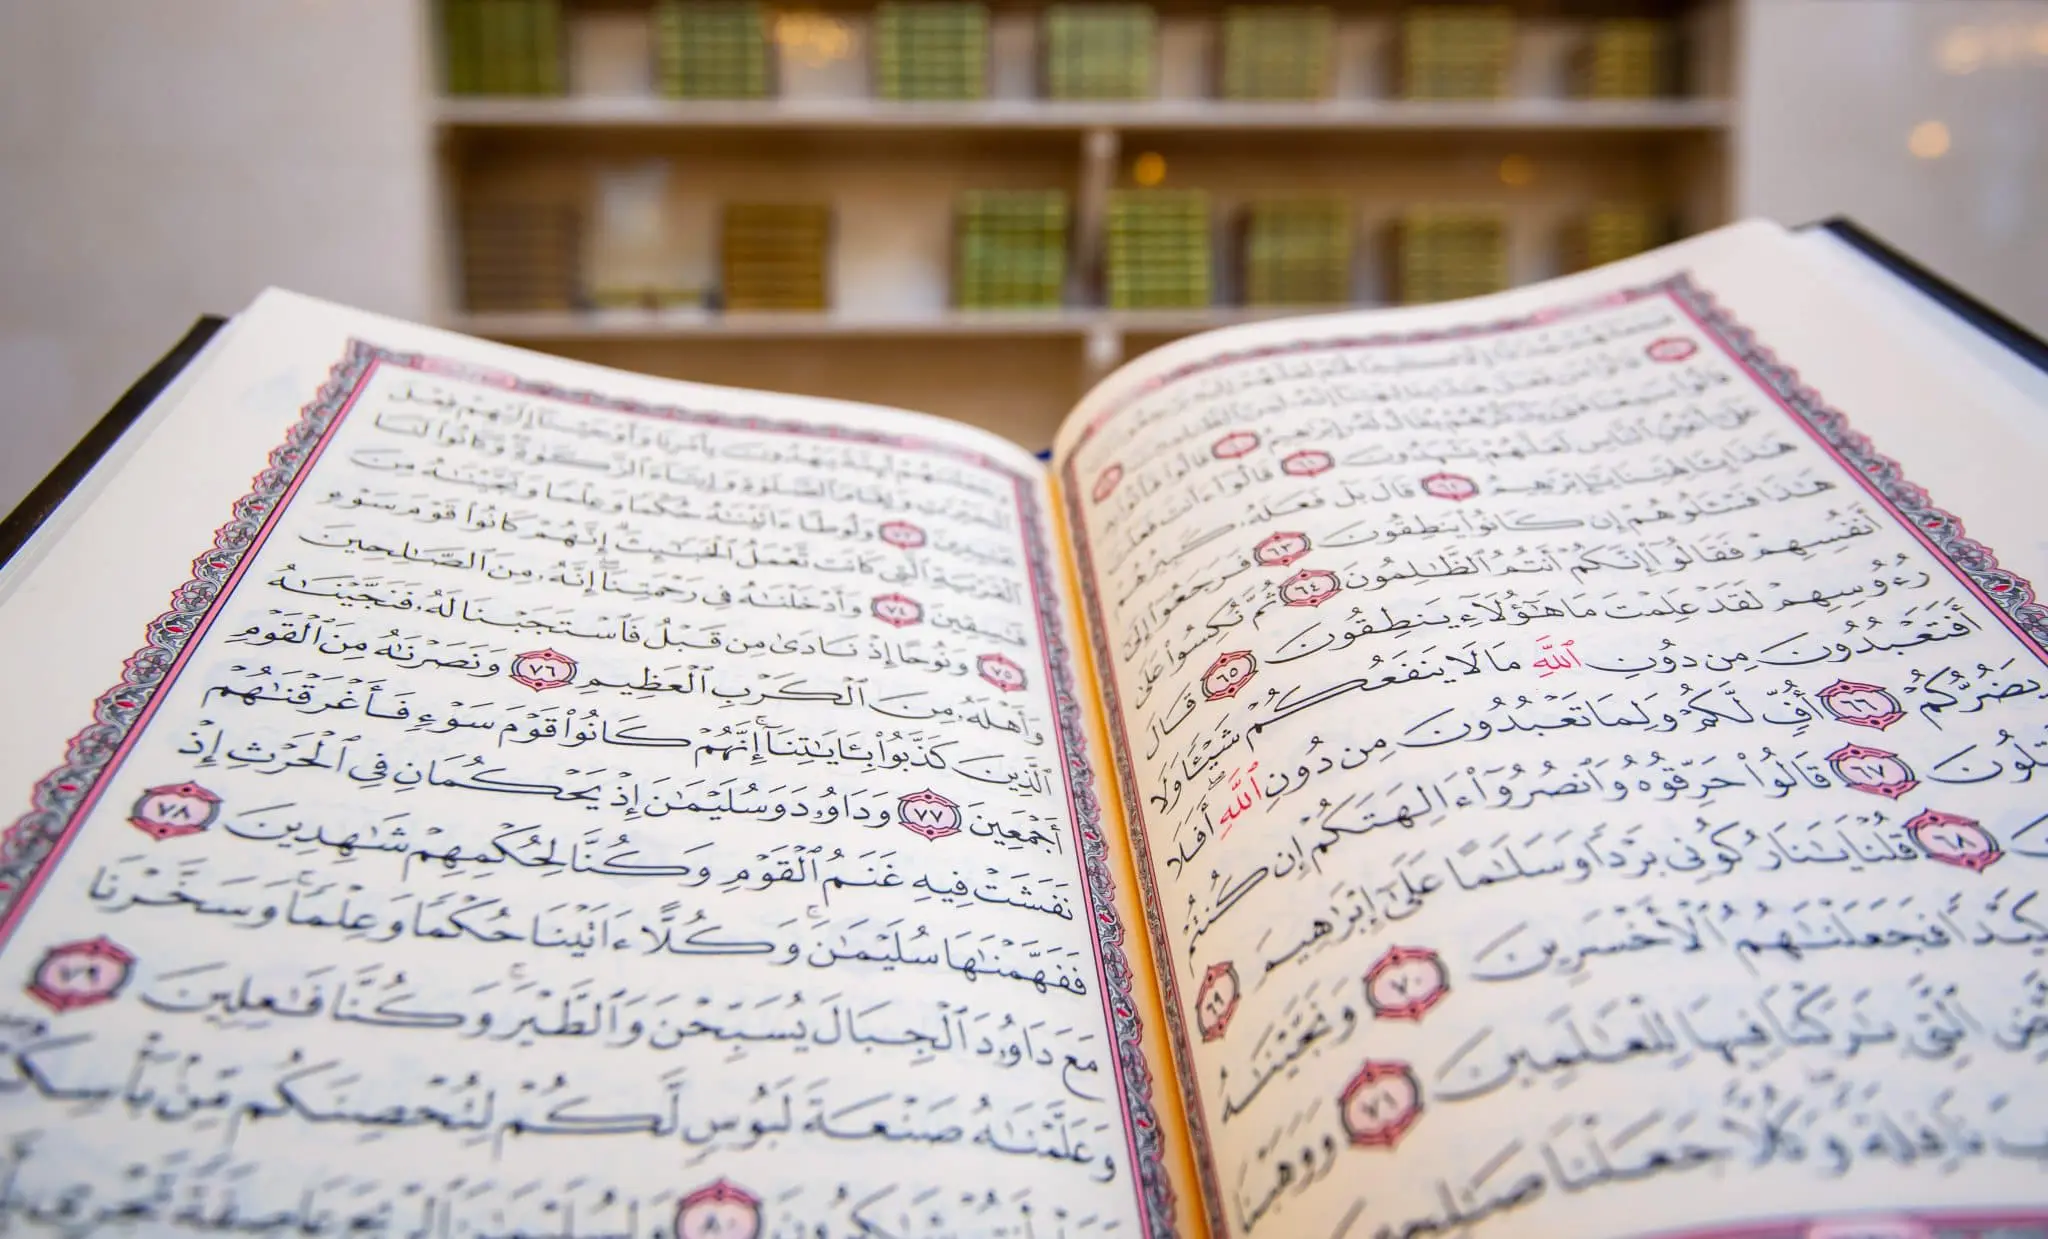 قَالُوا۟ مَن فَعَلَ هَٰذَا بِـَٔالِهَتِنَآ إِنَّهُۥ لَمِنَ ٱلظَّٰلِمِينَ
قَالُوا۟ سَمِعْنَا فَتًى يَذْكُرُهُمْ يُقَالُ لَهُۥٓ إِبْرَٰهِيمُ ٦٠ قَالُوا۟ فَأْتُوا۟ بِهِۦ
عَلَىٰٓ أَعْيُنِ ٱلنَّاسِ لَعَلَّهُمْ يَشْهَدُونَ ٦١ قَالُوٓا۟ ءَأَنتَ فَعَلْتَ
هَٰذَا بِـَٔالِهَتِنَا يَٰٓإِبْرَٰهِيمُ ٦٢ قَالَ بَلْ فَعَلَهُۥ كَبِيرُهُمْ
هَٰذَا فَسْـَٔلُوهُمْ إِن كَانُوا۟ يَنطِقُونَ ٦٣ فَرَجَعُوٓا۟ إِلَىٰٓ
أَنفُسِهِمْ فَقَالُوٓا۟ إِنَّكُمْ أَنتُمُ ٱلظَّٰلِمُونَ ٦٤ ثُمَّ نُكِسُوا۟ عَلَىٰ
رُءُوسِهِمْ لَقَدْ عَلِمْتَ مَا هَٰٓؤُلَآءِ يَنطِقُونَ ٦٥ قَالَ
أَفَتَعْبُدُونَ مِن دُونِ ٱللَّهِ مَا لَا يَنفَعُكُمْ شَيْـًٔا وَلَا
يَضُرُّكُمْ ٦٦ أُفٍّ لَّكُمْ وَلِمَا تَعْبُدُونَ مِن دُونِ ٱللَّهِ ۖ أَفَلَا
قِلُونَ ٦٧ قَالُوا۟ حَرِّقُوهُ وَٱنصُرُوٓا۟ ءَالِهَتَكُمْ إِن كُنتُمْ
٦٨ قُلْنَا يَٰنَارُ كُونِى بَرْدًا وَسَلَٰمًا عَلَىٰٓ إِبْرَٰهِيمَ
٦٩ كَيْدًا فَجَعَلْنَٰهُمُ ٱلْأَخْسَرِينَ ٧٠ وَنَجَّيْنَٰهُ
ٱلَّتِى بَٰرَكْنَا فِيهَا لِلْعَٰلَمِينَ ٧١ وَوَهَبْنَا
نَافِلَةً ۖ وَكُلًّا جَعَلْنَا صَٰلِحِينَ
وَجَعَلْنَٰهُمْ أَئِمَّةً يَهْدُونَ بِأَمْرِنَا وَأَوْحَيْنَآ إِلَيْهِمْ فِعْلَ
ٱلْخَيْرَٰتِ وَإِقَامَ ٱلصَّلَوٰةِ وَإِيتَآءَ ٱلزَّكَوٰةِ ۖ وَكَانُوا۟ لَنَا
عَٰبِدِينَ ٧٣ وَلُوطًا ءَاتَيْنَٰهُ حُكْمًا وَعِلْمًا وَنَجَّيْنَٰهُ مِنَ
ٱلْقَرْيَةِ ٱلَّتِى كَانَت تَّعْمَلُ ٱلْخَبَٰٓئِثَ ۗ إِنَّهُمْ كَانُوا۟ قَوْمَ سَوْءٍ
فَٰسِقِينَ ٧٤ وَأَدْخَلْنَٰهُ فِى رَحْمَتِنَآ ۖ إِنَّهُۥ مِنَ ٱلصَّٰلِحِينَ
٧٥ وَنُوحًا إِذْ نَادَىٰ مِن قَبْلُ فَٱسْتَجَبْنَا لَهُۥ فَنَجَّيْنَٰهُ
وَأَهْلَهُۥ مِنَ ٱلْكَرْبِ ٱلْعَظِيمِ ٧٦ وَنَصَرْنَٰهُ مِنَ ٱلْقَوْمِ
ٱلَّذِينَ كَذَّبُوا۟ بِـَٔايَٰتِنَآ ۚ إِنَّهُمْ كَانُوا۟ قَوْمَ سَوْءٍ فَأَغْرَقْنَٰهُمْ
أَجْمَعِينَ ٧٧ وَدَاوُۥدَ وَسُلَيْمَٰنَ إِذْ يَحْكُمَانِ فِى ٱلْحَرْثِ إِذْ
نَفَشَتْ فِيهِ غَنَمُ ٱلْقَوْمِ وَكُنَّا لِحُكْمِهِمْ شَٰهِدِينَ ٧٨
فَفَهَّمْنَٰهَا سُلَيْمَٰنَ ۚ وَكُلًّا ءَاتَيْنَا حُكْمًا وَعِلْمًا ۚ وَسَخَّرْنَا
مَعَ دَاوُۥدَ ٱلْجِبَالَ يُسَبِّحْنَ وَٱلطَّيْرَ ۚ وَكُنَّا فَٰعِلِينَ ٧٩
وَعَلَّمْنَٰهُ صَنْعَةَ لَبُوسٍ لَّكُمْ لِتُحْصِنَكُم مِّنۢ بَأْسِكُمْ
فَهَلْ أَنتُمْ شَٰكِرُونَ ٨٠ وَلِسُلَيْمَٰنَ ٱلرِّيحَ عَاصِفَةً تَجْرِى